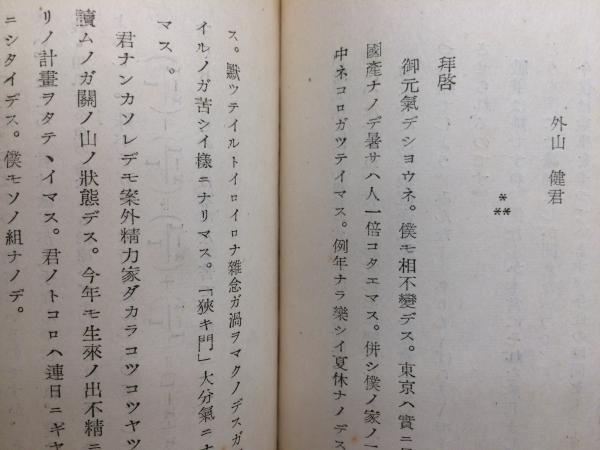 外山　健君
＊
＊＊
拜啓
御元氣デショウネ。僕モ相不變デス。東京ハ實ニ
國產ナノデ暑サハ人一倍コタエマス。併シ僕ノ家ノ一
中ネコロガツテイマス。例年ナラ樂シイ夏休ナノデス
ス。默ツテイルトイロイロナ雜念ガ渦ヲマクノデスガ
イルノガ苦シイ樣ニナリマス。「狹キ門」大分氣ニナ
マス。
君ナンカソレデモ案外精力家ダカラコツコツヤツ
讀ムノガ關ノ山ノ狀態デス。今年モ生來ノ出不精ニ
リノ計畫ヲタテヽイマス。君ノトコロハ連日ニギヤ
ニシタイデス。僕モソノ組ナノデ。